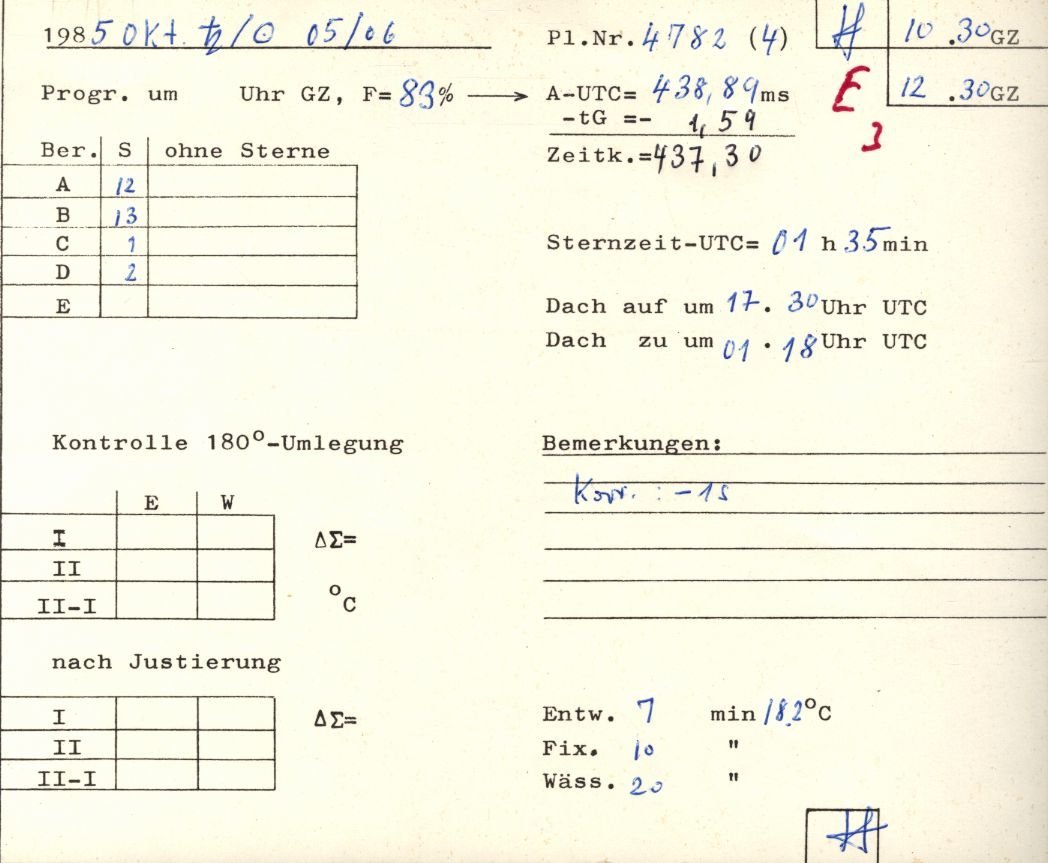 1985 Okt. ♄/☉ 05/06
Pl.Nr. 4782 (4)
10 .30 GZ
Progr. um Uhr GZ, F= 83% → A-UTC= 438,89 ms
E
12 .30 GZ
-tG =- 1,59
3
Ber. S ohne Sterne
Zeitk.=437,30
A 12
B 13
C 1
D 2
E
Sternzeit-UTC= 01 h 35 min
Dach auf um 17. 30 Uhr UTC
Dach zu um 01 . 18 Uhr UTC
Kontrolle 180°-Umlegung
E W
I ΔΣ=
II
II-I °C
Bemerkungen:
Korr. : -1s
nach Justierung
I ΔΣ=
II
II-I
Entw. 7 min 18,2°C
Fix. 10 "
Wäss. 20 "